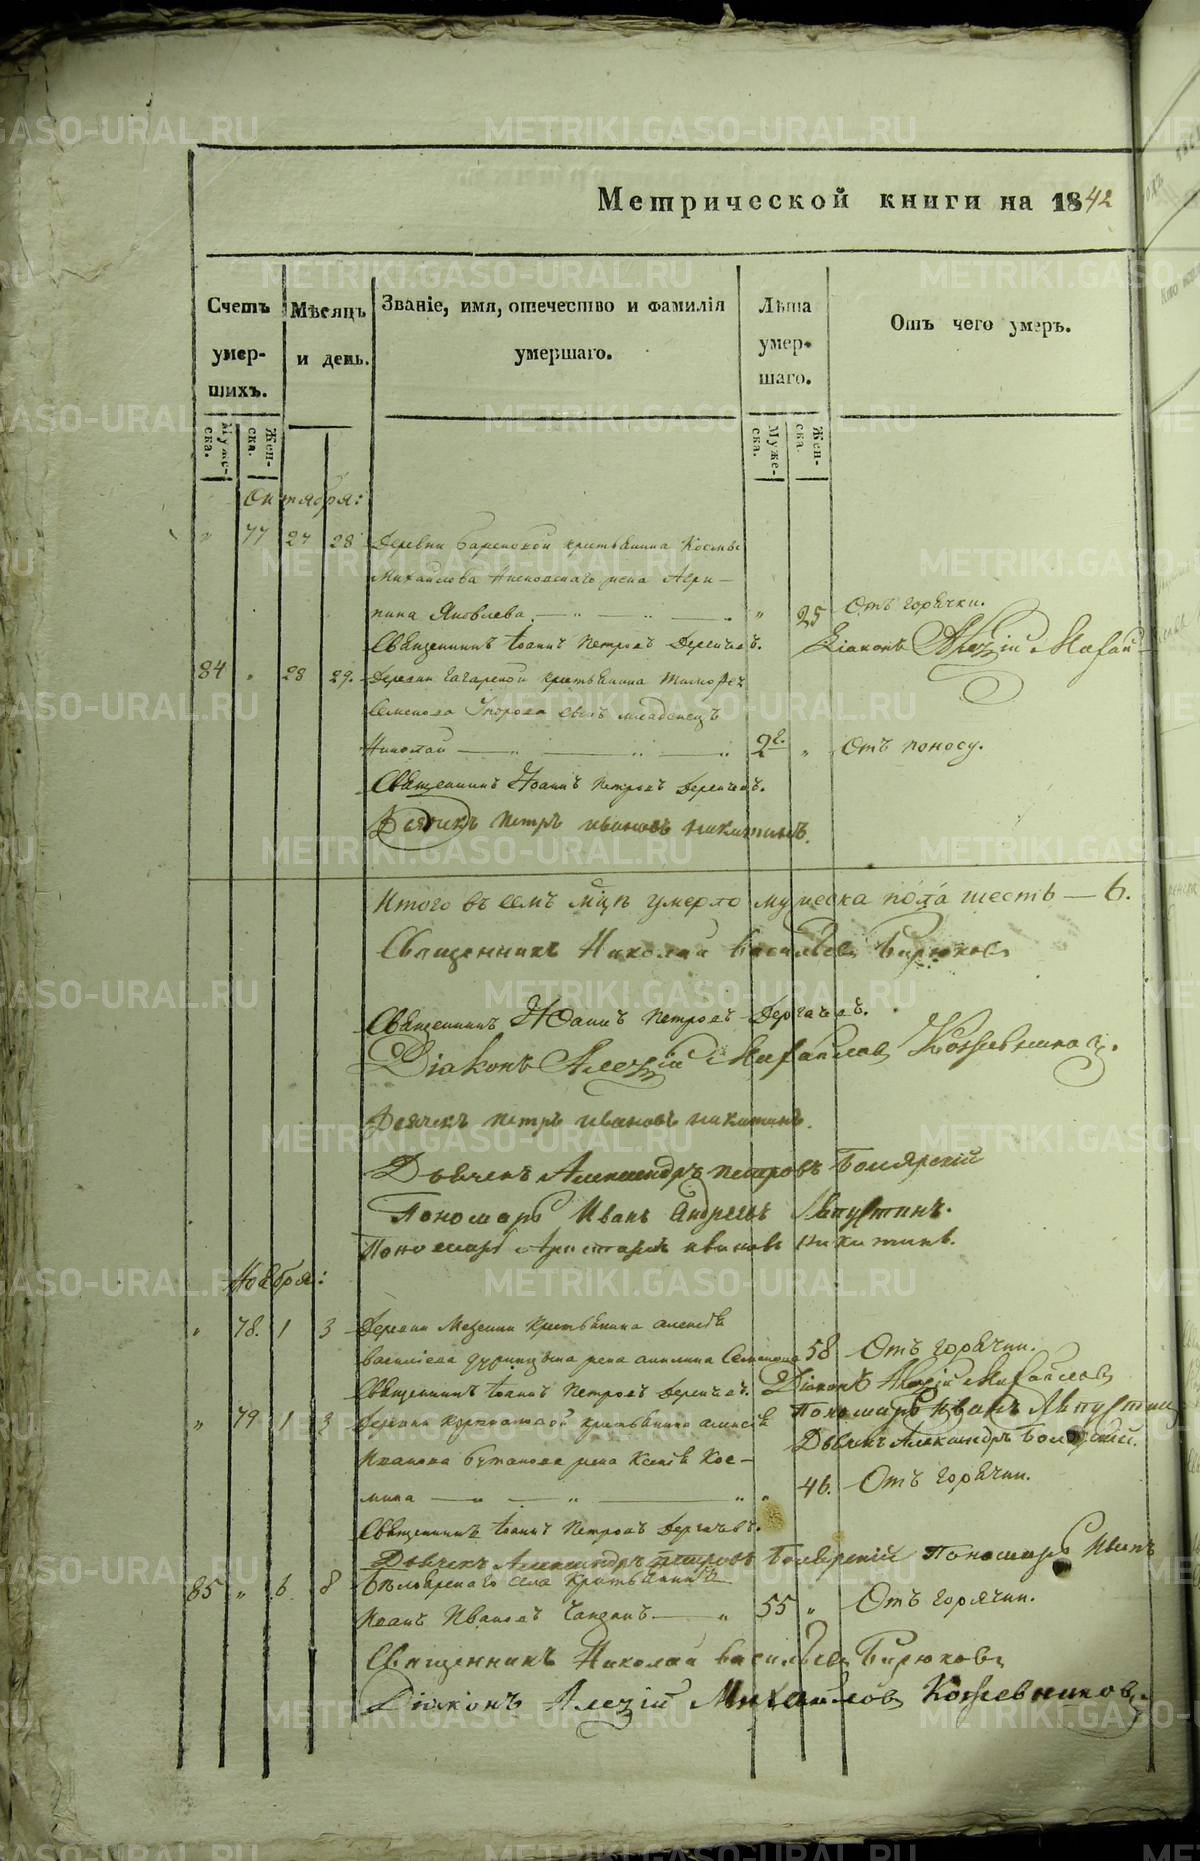 Метрической книги на 1842
Счетъ умер-шихъ.
Мѣсяцъ и день.
Званіе, имя, отечество и фамилія умершаго.
Лѣта умер-шаго.
Отъ чего умеръ.
Муже-ска.
Жен-ска.
Муже-ска.
Жен-ска.
Октября:
77 27 28 Деревни крестьянина Косьмы
Михайлова жена Агри-
пина Яковлева 25 Отъ горячки.
Священникъ Іоаннъ Петровъ Дергачевъ. Діаконъ Алексій Михай
84 28 29. Деревни Гагарской крестьянина Тимофея
Семенова сынъ младенецъ
Николай 2 Отъ поносу.
Священникъ Іоаннъ Петровъ Дергачевъ.
Дьячекъ Петръ Ивановъ Никитинъ.
Итого въ семъ мцѣ умерло мужеска пола шесть — 6.
Священникъ Николай Васильевъ Бирюковъ
Священникъ Іоаннъ Петровъ Дергачевъ.
Діаконъ Алексій Михайловъ Кожевниковъ.
Дьячекъ Петръ Ивановъ Никитинъ.
Дьячекъ Александръ Петровъ Боярскій
Пономарь Иванъ Андреевъ Лапустинъ.
Пономарь Аристархъ Ивановъ Никитинъ.
Ноября:
78. 1 3 Деревни крестьянина Алексѣя
Васильева жена Акилина Семенова 58 Отъ горячки.
Священникъ Іоаннъ Петровъ Дергачевъ. Діаконъ Алексій Михайловъ
79 1 3 Деревни крестьянина Алексѣя Пономарь Иванъ Лапустин
Иванова жена Ксенія Кос- Дьячекъ Александръ Боярскій.
мина 46. Отъ горячки.
Священникъ Іоаннъ Петровъ Дергачевъ.
Дьячекъ Александръ Петровъ Боярскій Пономарь Иванъ
85 6 8 Бѣлоярскаго села крестьянинъ
Иванъ Ивановъ 55 Отъ горячки.
Священникъ Николай Васильевъ Бирюковъ
Діаконъ Алексій Михайловъ Кожевниковъ.
METRIKI.GASO-URAL.RU